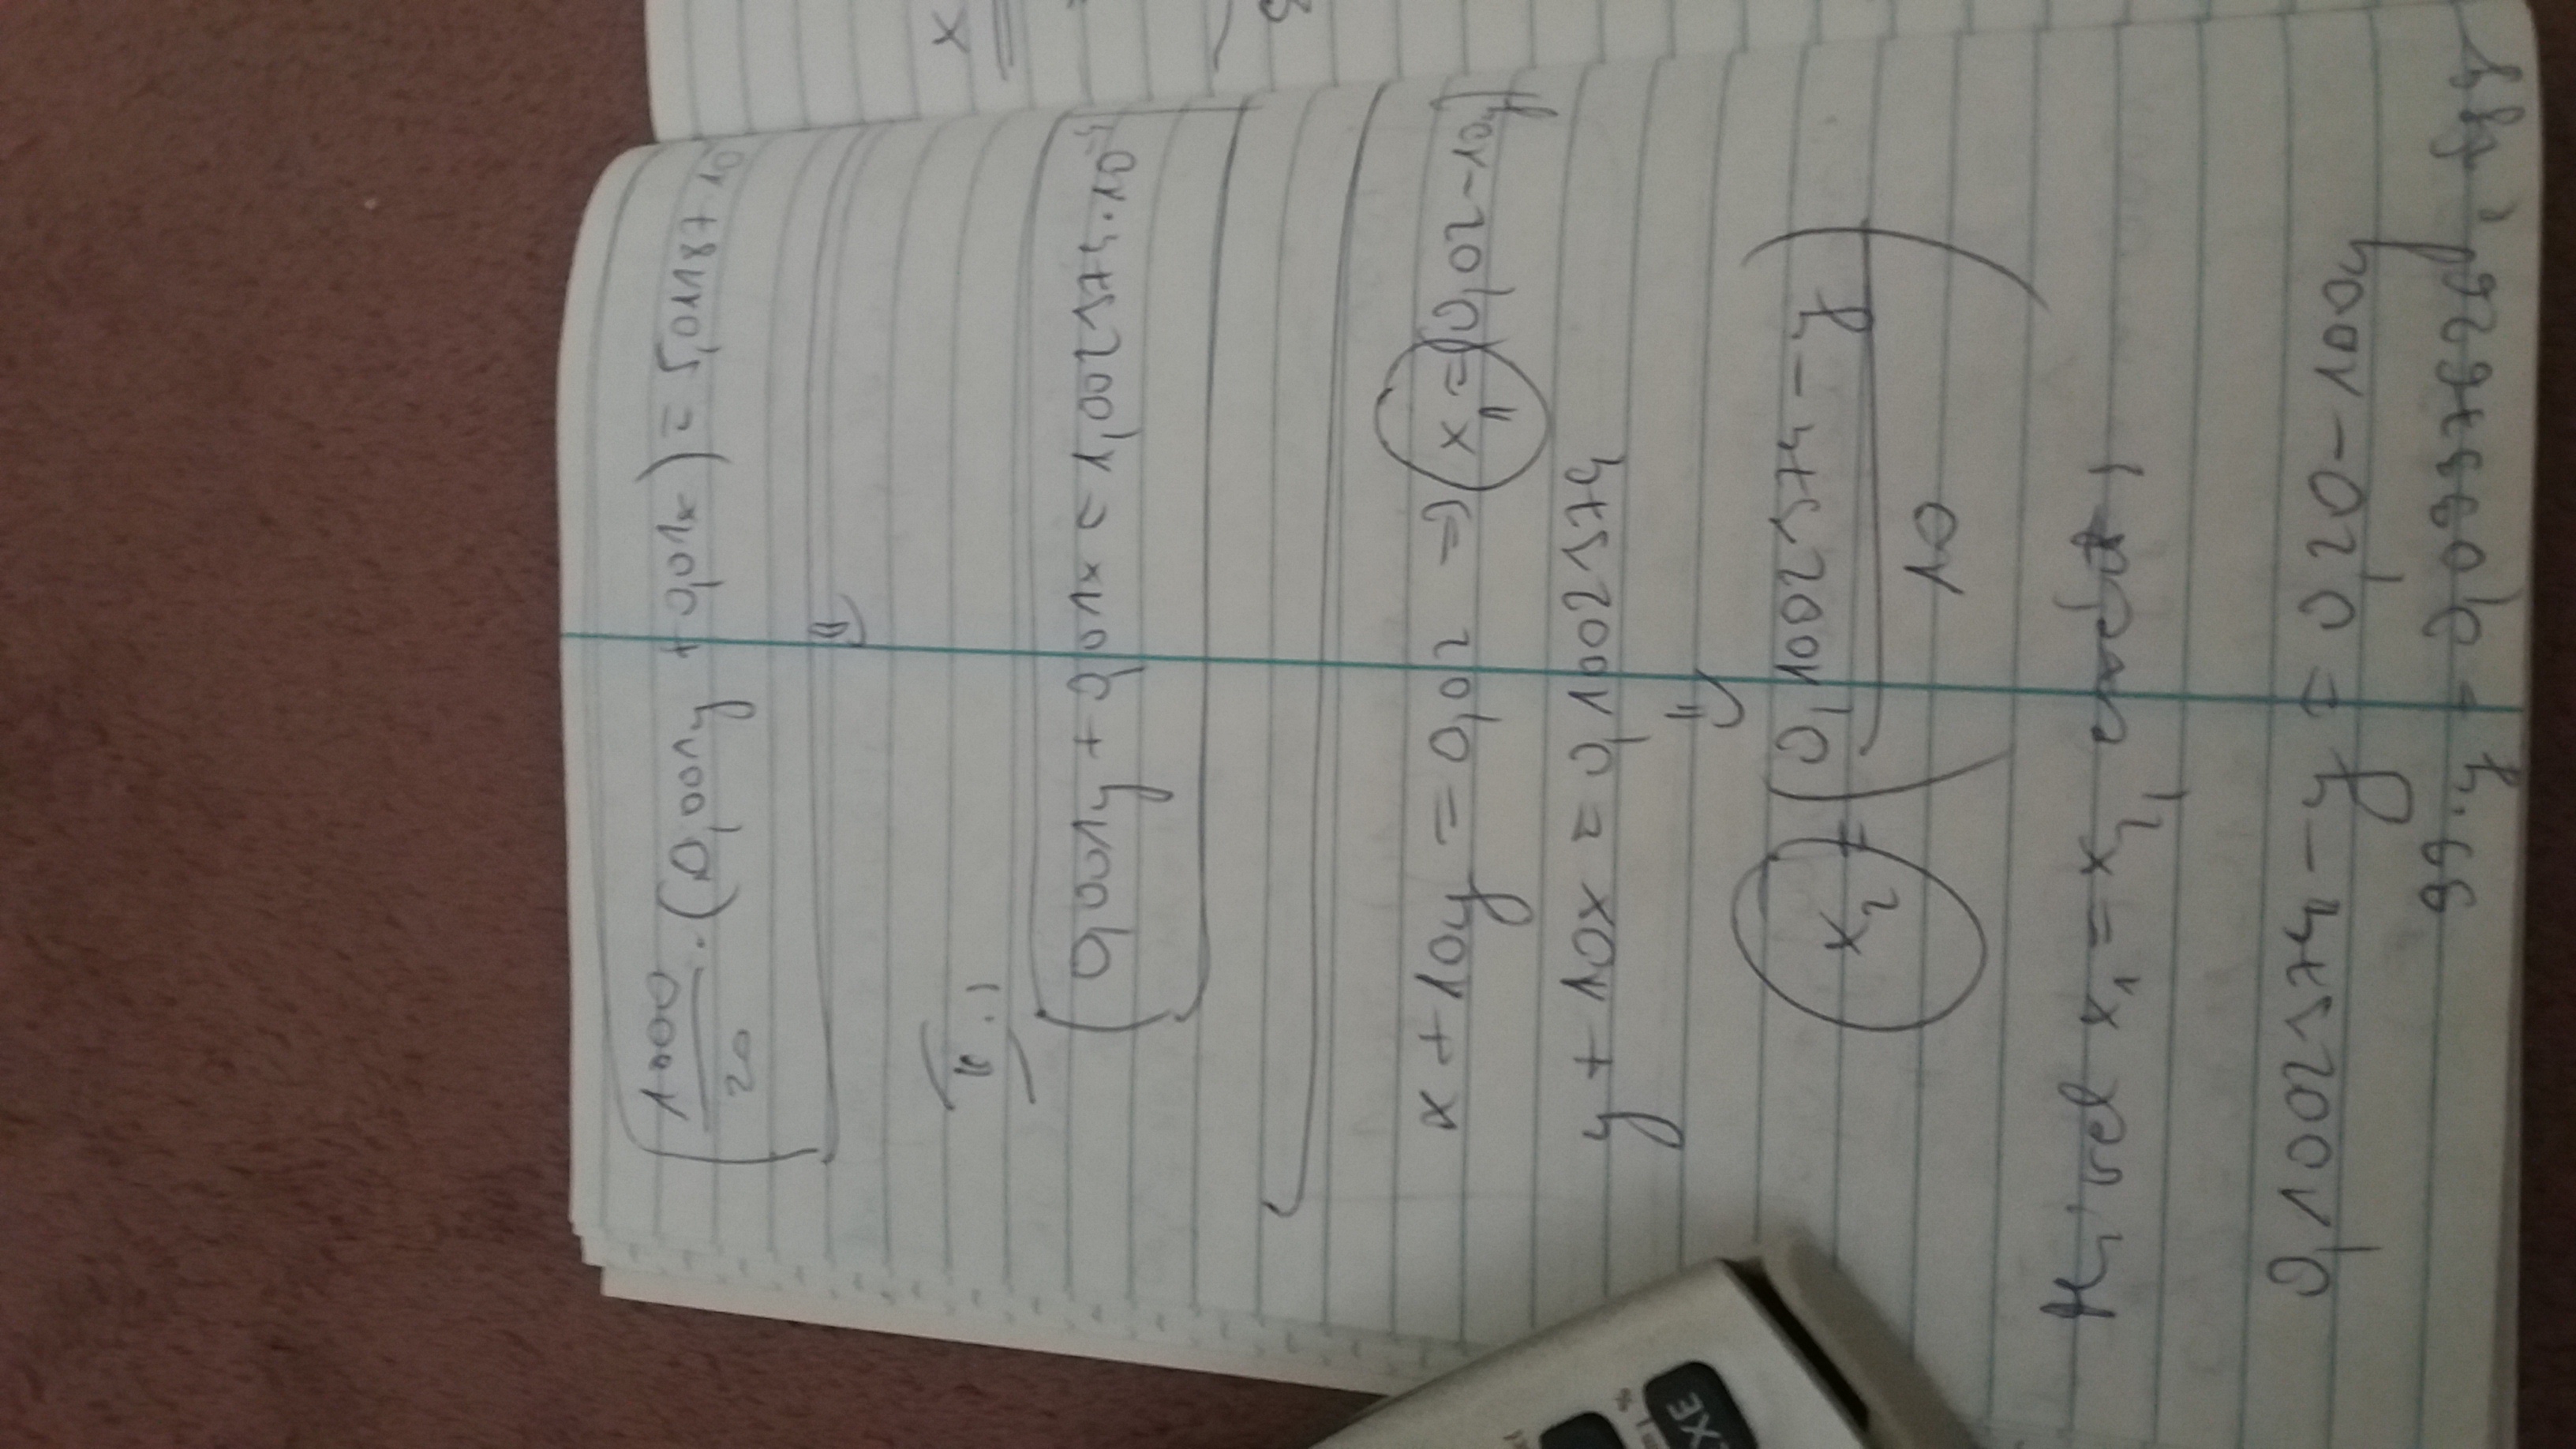 1000/20 · (0,001y + 0,01x) = 5,01187 · 10
0,001y + 0,01x = 1,002574 · 10
x + 10y = 0,02 => x₁ = (0,02 - 10y)
y + 10x = 0,1002574
x₂ = (0,1002574 - y / 10)
x₁ = x₂,
0,1002574 - y = 0,20 - 100y
99 · y =
EXE